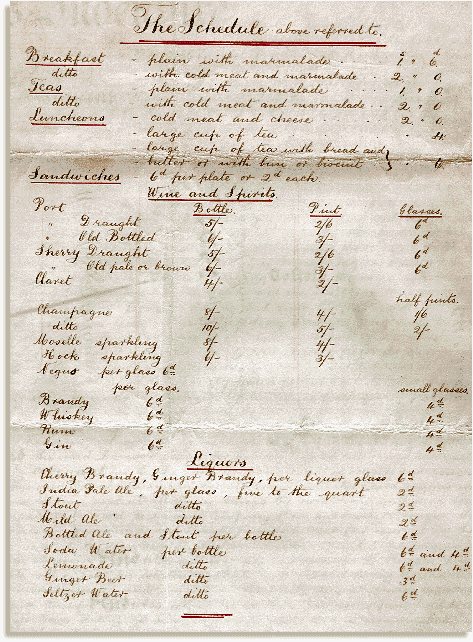 The Schedule above referred to.
s d
Breakfast - plain with marmalade . . . 1 " 6.
ditto - with cold meat and marmalade . . 2. " 0.
Teas - plain with marmalade . . . 1. " 0.
ditto - with cold meat and marmalade . . 2. " 0
Luncheons - cold meat and cheese . . . 2. " 0.
large cup of tea . . . " 4.
large cup of tea with bread and
butter or with bun or biscuit } " 6.
Sandwiches 6d per plate or 2d each.
Wine and Spirits
Port Bottle. Pint. Glasses.
" Draught 5/- 2/6 6d
" Old Bottled 6/- 3/- 6d
Sherry Draught 5/- 2/6 6d
" Old pale or brown 6/- 3/- 6d
Claret 4/- 2/-
half pints.
Champagne 8/- 4/-
ditto 10/- 5/- 2/-
Moselle sparkling 8/- 4/-
Hock sparkling 6/- 3/-
Negus per glass 6d
per glass. small glasses.
Brandy 6d 4d
Whiskey 6d 4d
Rum 6d 4d
Gin 6d 4d
Liquors
Cherry Brandy, Ginger Brandy, per liquor glass 6d
India Pale Ale, per glass, five to the quart 2d
Stout ditto 2d
Mild Ale ditto 2d
Bottled Ale and Stout per bottle 6d
Soda Water per bottle 6d and 4d
Lemonade ditto 6d and 4d
Ginger Beer ditto 3d
Seltzer Water ditto 6d